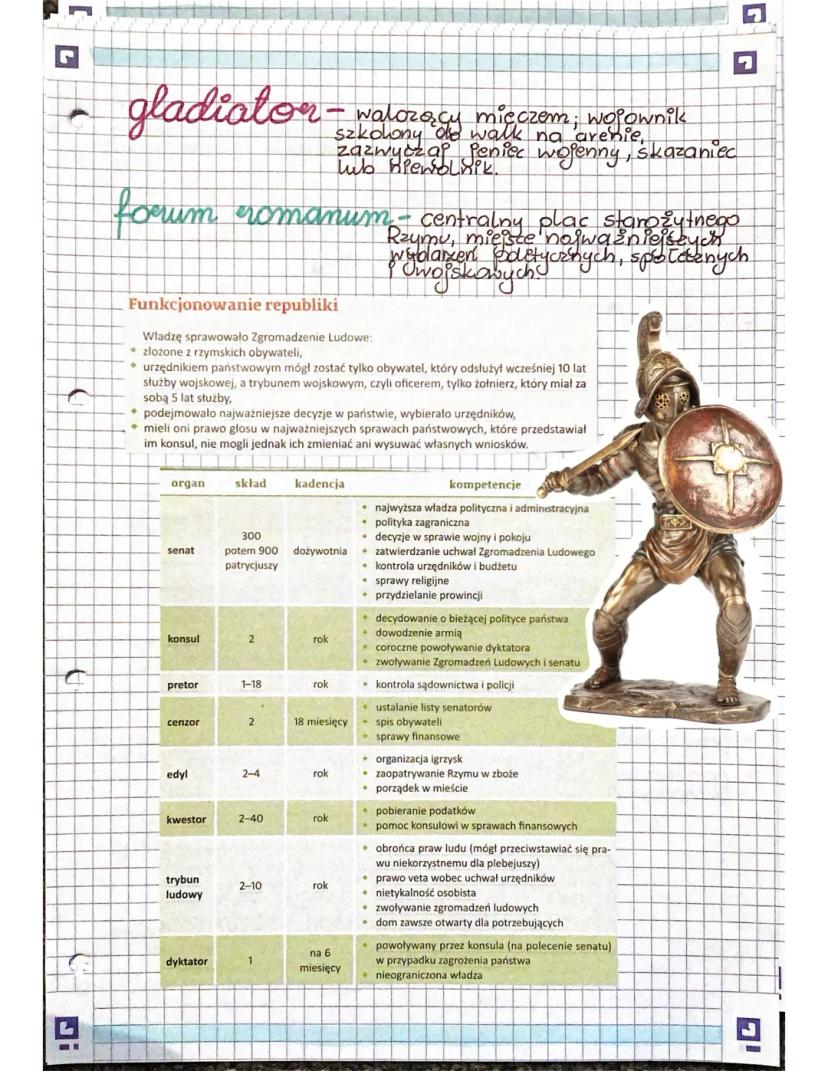 gladiator - walczący mieczem; wojownik
szkolony do walk na arenie,
zazwyczaj jeniec wojenny, skazaniec
lub niewolnik.
forum romanum - centralny plac starożytnego
Rzymu, miejsce najważniejszych
wydarzeń politycznych, społecznych
i wojskowych.
Funkcjonowanie republiki
Władzę sprawowało Zgromadzenie Ludowe:
• złożone z rzymskich obywateli,
• urzędnikiem państwowym mógł zostać tylko obywatel, który odsłużył wcześniej 10 lat
służby wojskowej, a trybunem wojskowym, czyli oficerem, tylko żołnierz, który miał za
sobą 5 lat służby,
• podejmowało najważniejsze decyzje w państwie, wybierało urzędników,
• mieli oni prawo głosu w najważniejszych sprawach państwowych, które przedstawiał
im konsul, nie mogli jednak ich zmieniać ani wysuwać własnych wniosków.
organ skład kadencja kompetencje
senat
300
potem 900
patrycjuszy
dożywotnia
• najwyższa władza polityczna i administracyjna
• polityka zagraniczna
• decyzje w sprawie wojny i pokoju
• zatwierdzanie uchwał Zgromadzenia Ludowego
• kontrola urzędników i budżetu
• sprawy religijne
• przydzielanie prowincji
konsul
2
rok
• decydowanie o bieżącej polityce państwa
• dowodzenie armią
• coroczne powoływanie dyktatora
• zwoływanie Zgromadzeń Ludowych i senatu
pretor
1–18
rok
• kontrola sądownictwa i policji
cenzor
2
18 miesięcy
• ustalanie listy senatorów
• spis obywateli
• sprawy finansowe
edyl
2–4
rok
• organizacja igrzysk
• zaopatrywanie Rzymu w zboże
• porządek w mieście
kwestor
2–40
rok
• pobieranie podatków
• pomoc konsulowi w sprawach finansowych
trybun
ludowy
2–10
rok
• obrońca praw ludu (mógł przeciwstawiać się pra-
wu niekorzystnemu dla plebejuszy)
• prawo veta wobec uchwał urzędników
• nietykalność osobista
• zwoływanie zgromadzeń ludowych
• dom zawsze otwarty dla potrzebujących
dyktator
1
na 6
miesięcy
• powoływany przez konsula (na polecenie senatu)
w przypadku zagrożenia państwa
• nieograniczona władza